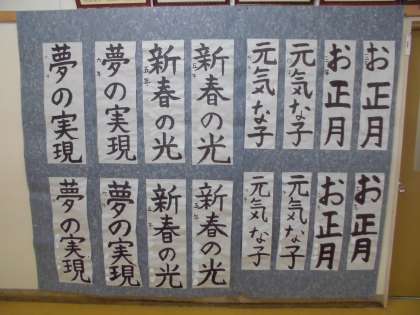 お正月
お正月
元気な子
元気な子
新春の光
新春の光
夢の実現
夢の実現
お正月
お正月
元気な子
元気な子
新春の光
新春の光
夢の実現
夢の実現